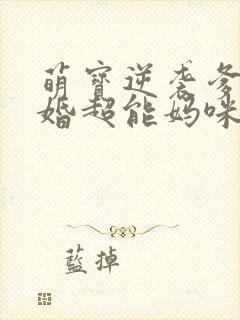 萌寶逆袭爹
婚超能妈咪
藍掉